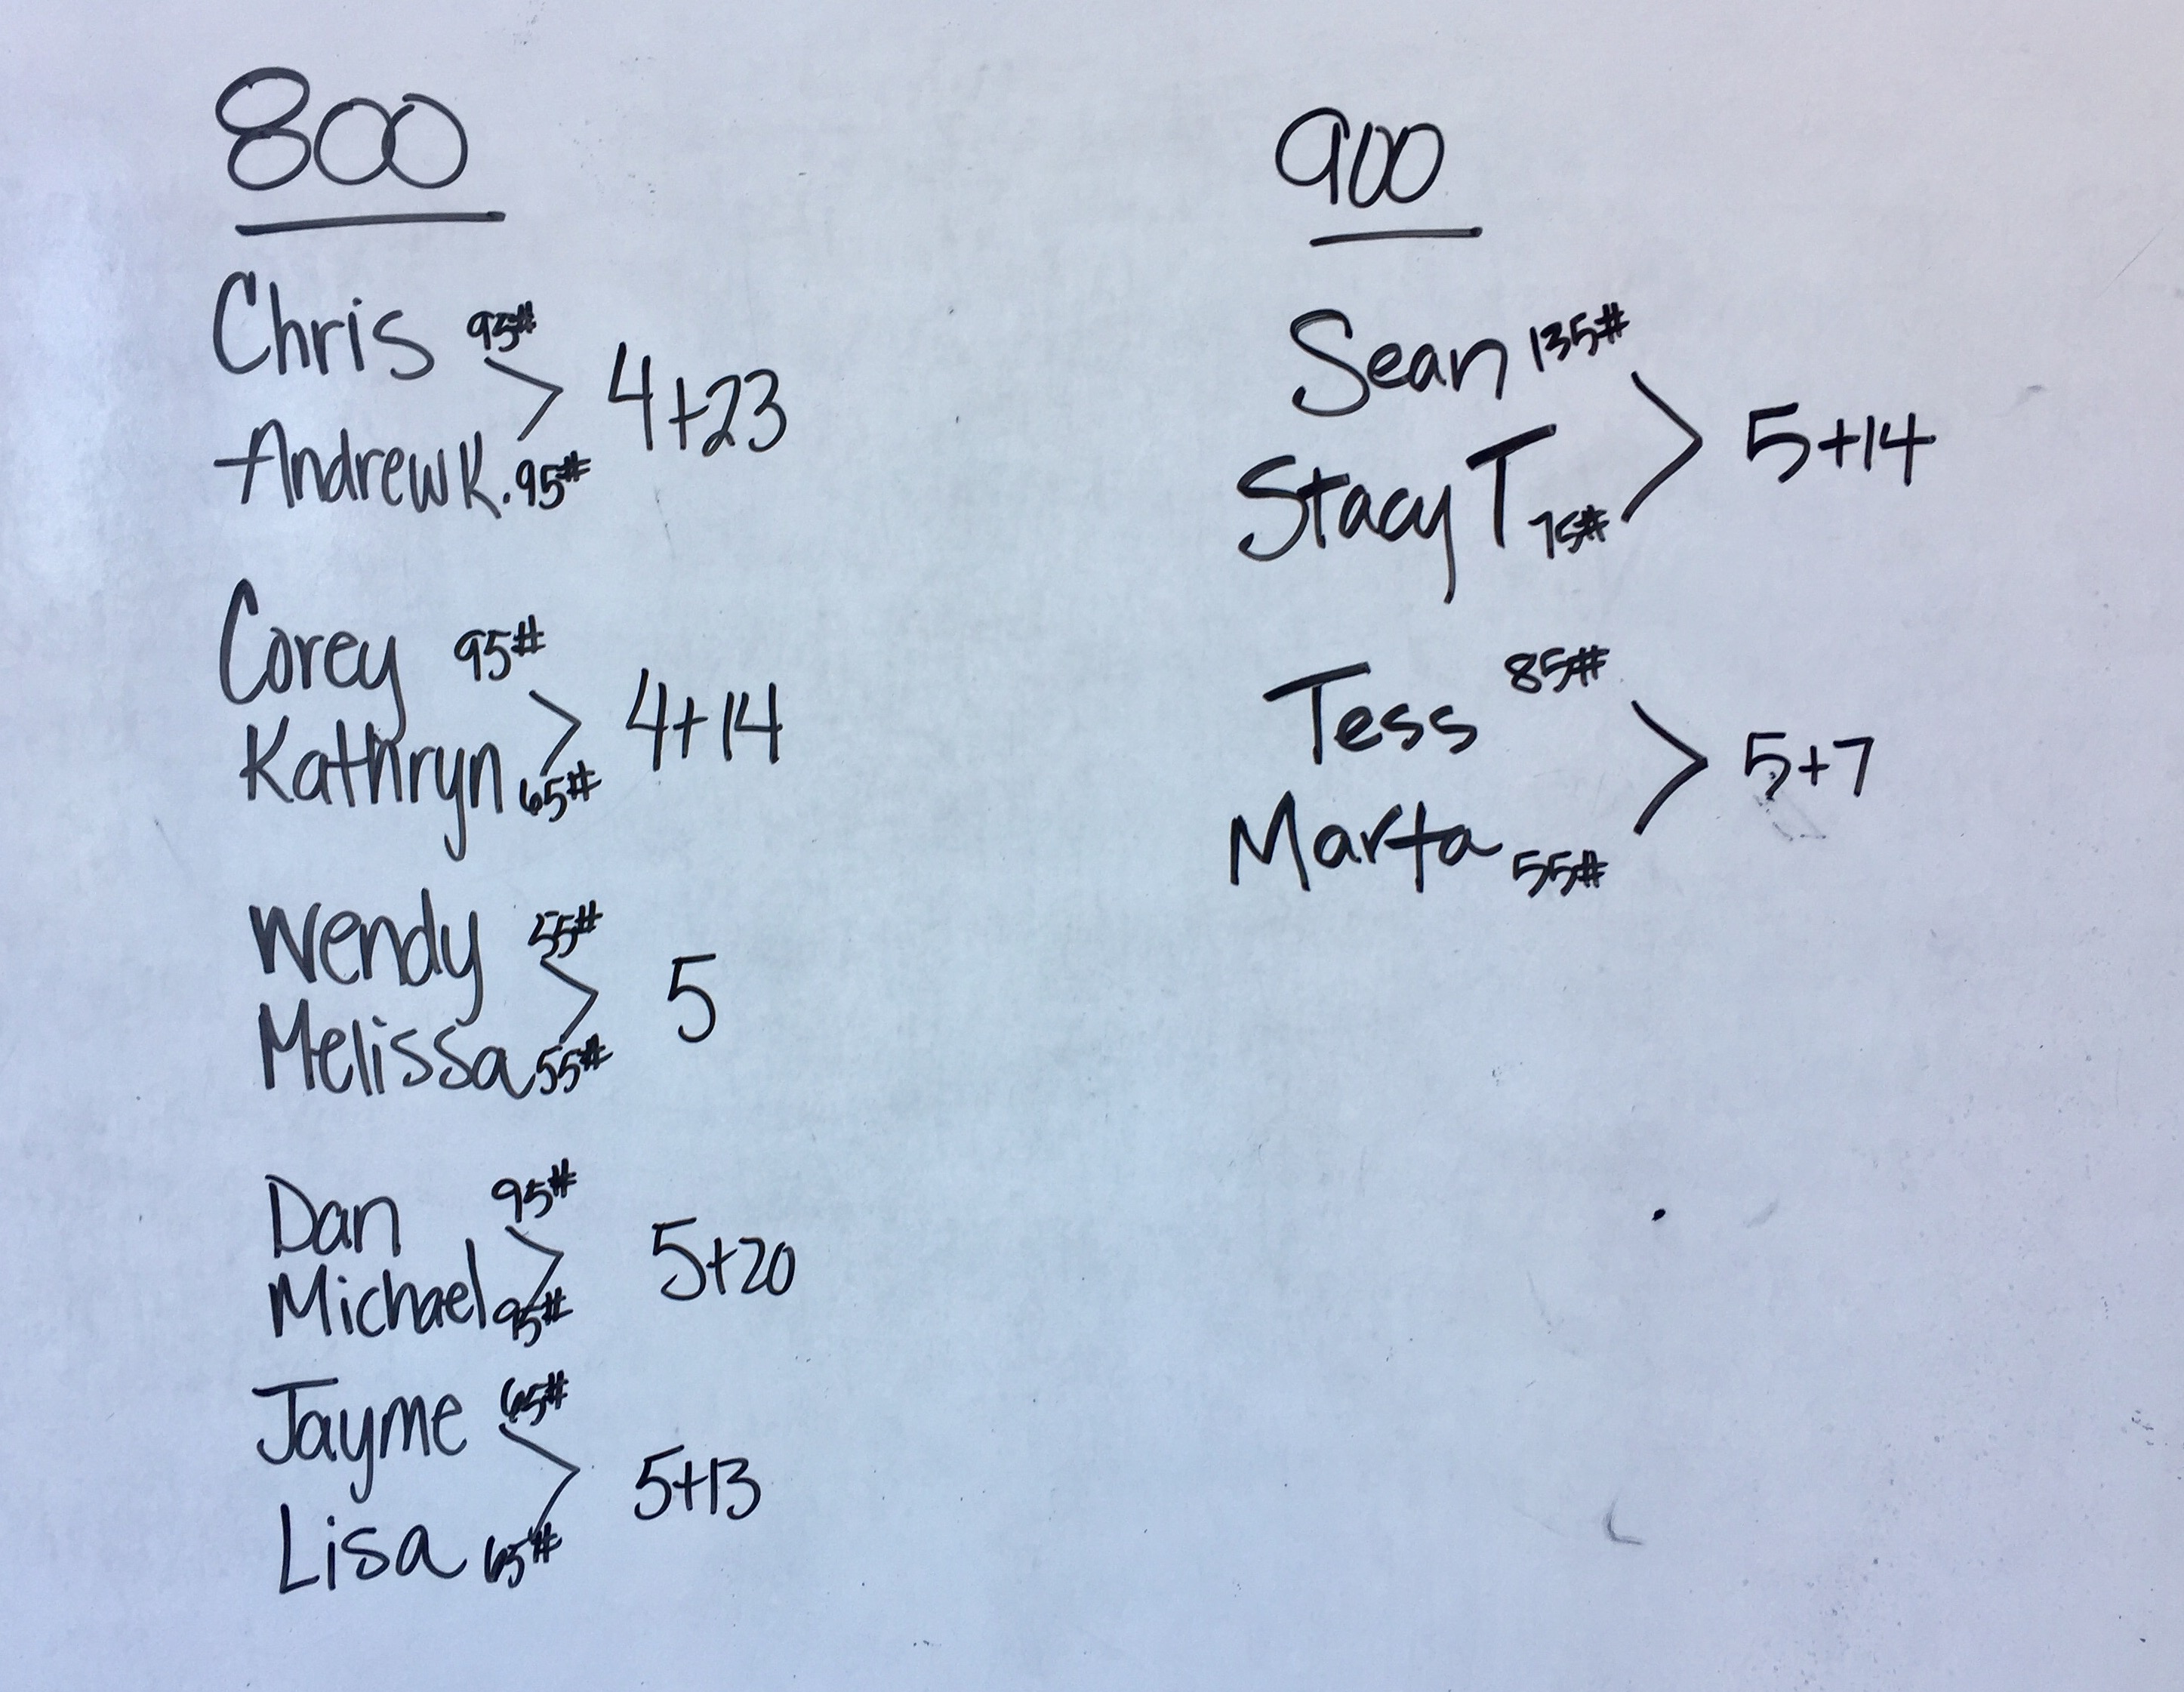 800
Chris 95#
> 4+23
Andrew K. 95#
Corey 95#
> 4+14
Kathryn 65#
Wendy 55#
> 5
Melissa 55#
Dan 95#
> 5+20
Michael 95#
Jayme 65#
> 5+13
Lisa 65#
900
Sean 135#
> 5+14
Stacy T 75#
Tess 85#
> 5+7
Marta 55#